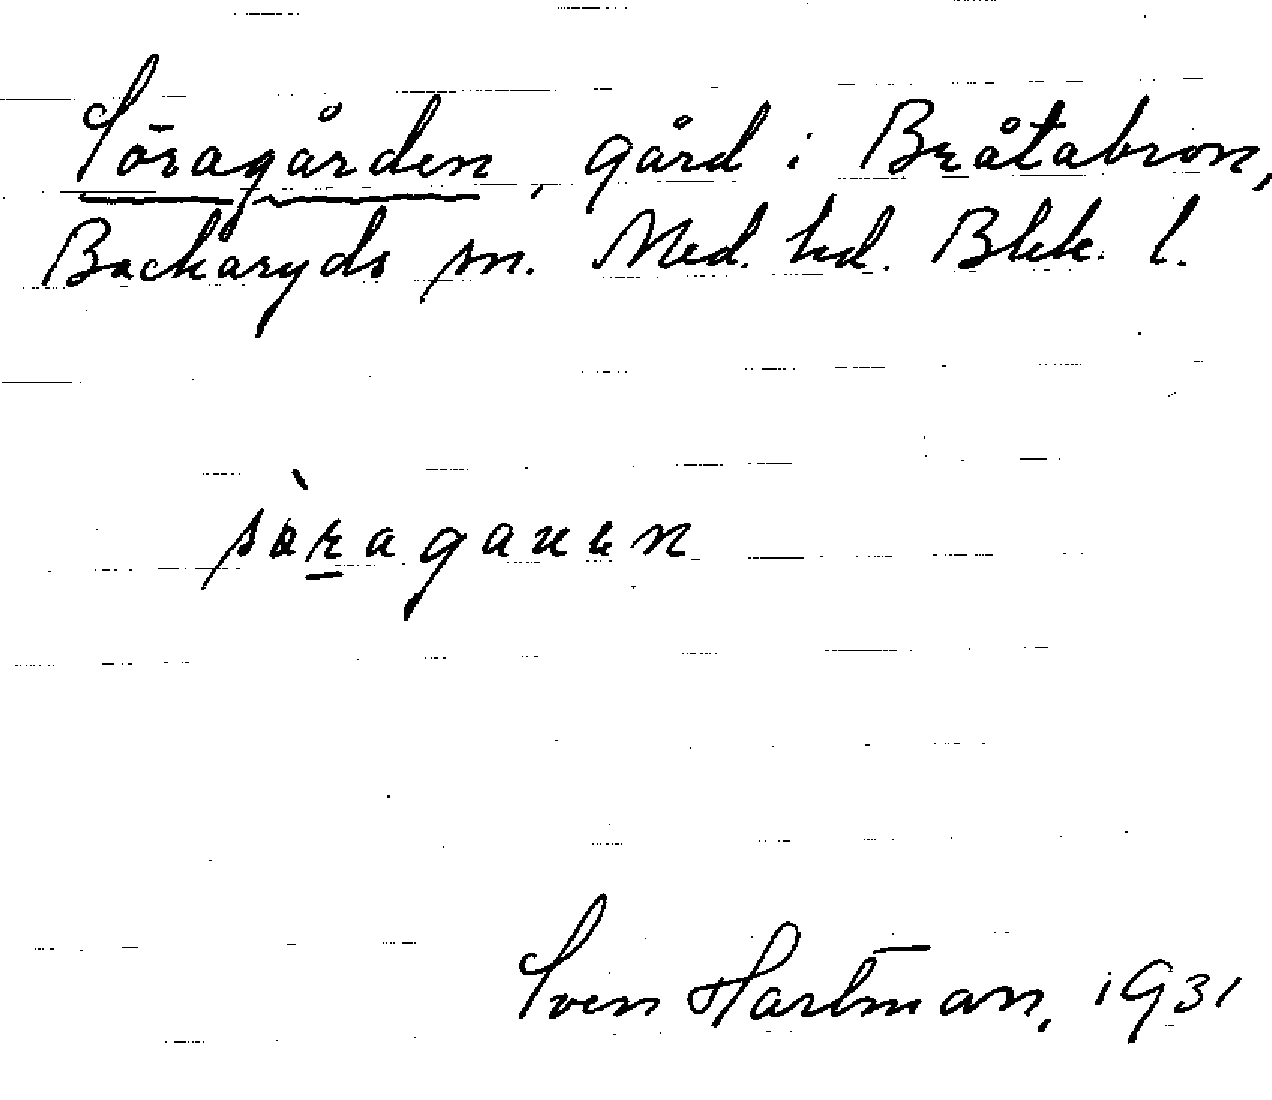 Söragården, gård i Bråtabron,
Backaryds sn. Med. hd. Blek. l.
sø̀ragaꭒen
Sven Hartman, 1931